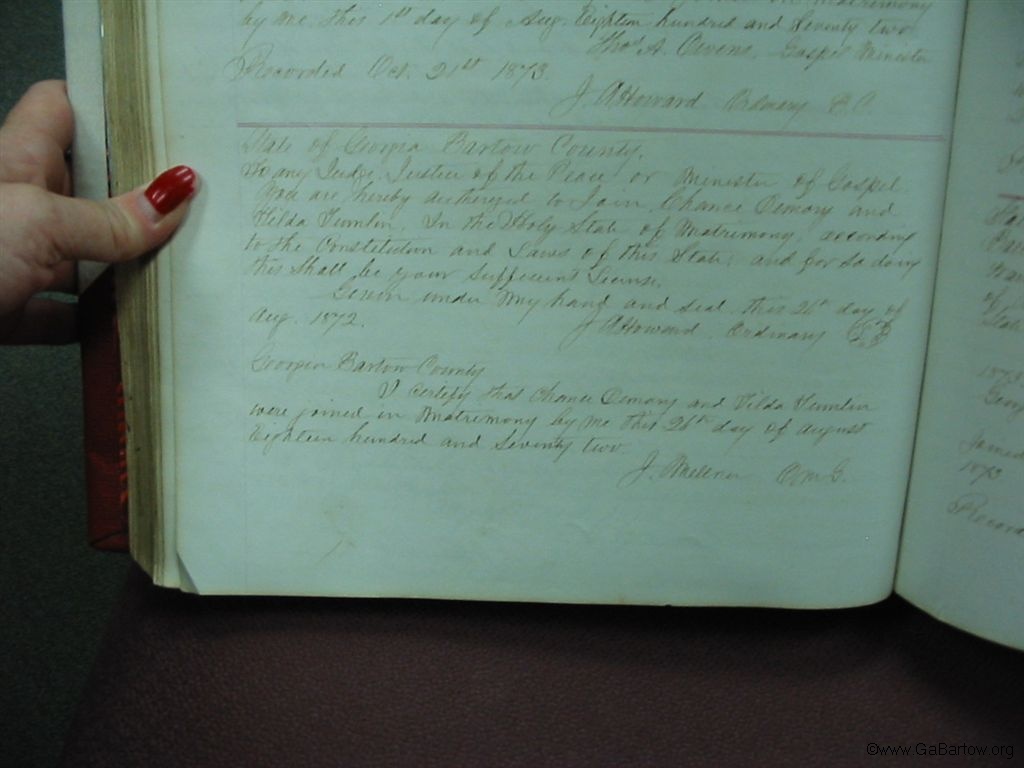 by me this 1st day of Aug. Eighteen hundred and Seventy two
Thos A. Owens, Gospel Minister
Recorded Oct. 21st 1873.
J. A Howard Ordinary B. C.
State of Georgia Bartow County.
To any Judge, Justice of the Peace or Minister of Gospel
You are hereby authorized to Join Chance Demory and
Tilda Tumlin, In the Holy State of Matrimony according
to the Constitution and Laws of this State; and for so doing
this Shall be your Sufficient License.
Given under my hand and seal this 26th day of
Aug. 1872. J A Howard Ordinary
Georgia Bartow County
I certify that Chance Demory and Tilda Tumlin
were joined in Matrimony by me this 26th day of August
Eighteen hundred and Seventy two.
J. Millner O M G.
1873
Joined
1873
Record
©www.GaBartow.org